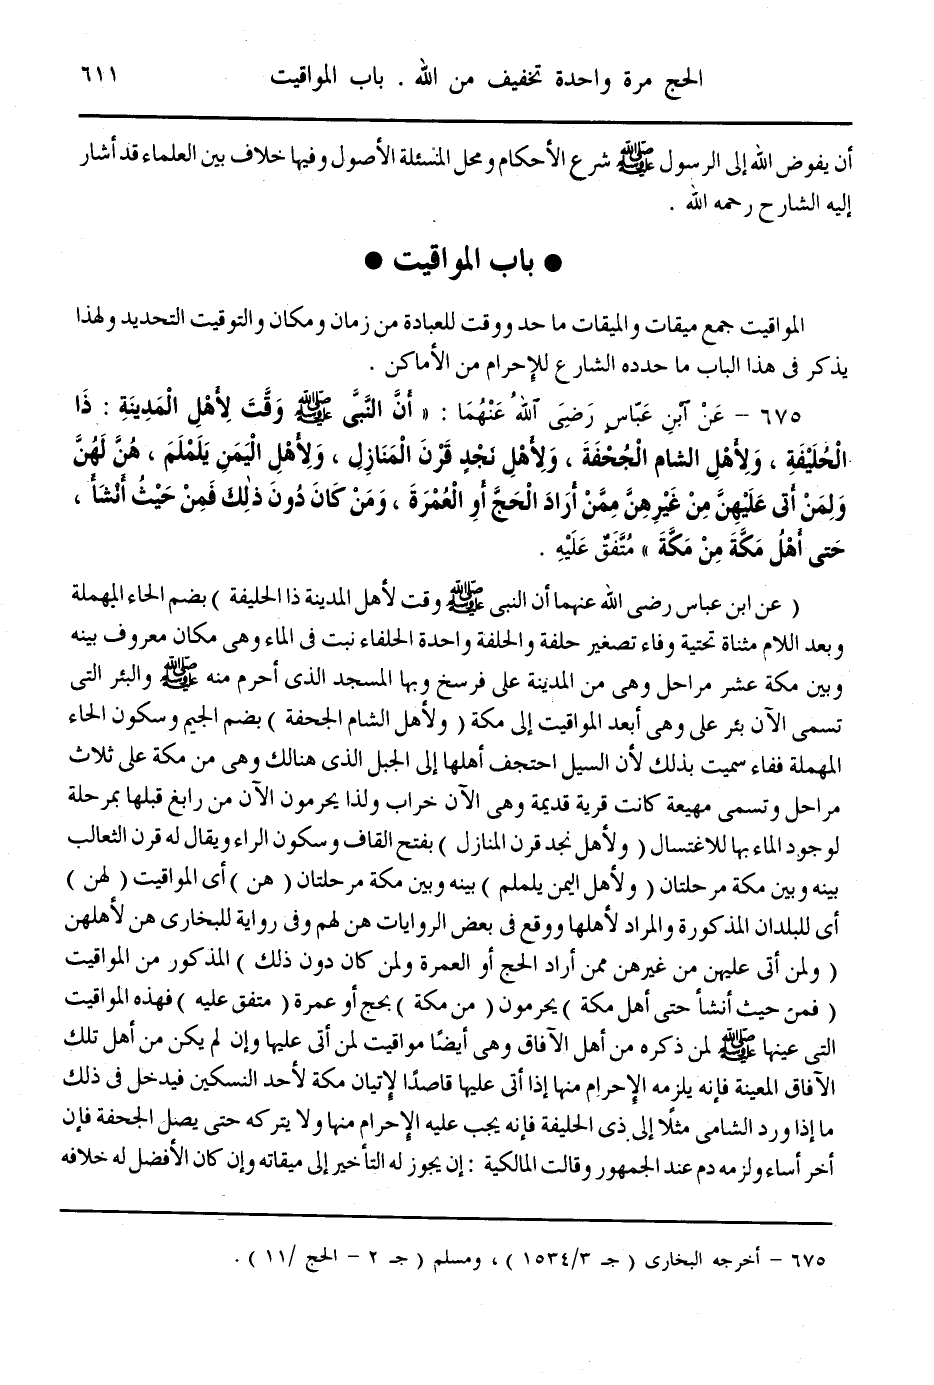 الحج مرة واحدة تخفيف من الله . باب المواقيت ٦١١
أن يفوض الله إلى الرسول ﷺ شرع الأحكام ومحل المسئلة الأصول وفيها خلاف بين العلماء قد أشار
إليه الشارح رحمه الله .
● باب المواقيت ●
المواقيت جمع ميقات والميقات ما حد ووقت للعبادة من زمان ومكان والتوقيت التحديد ولهذا
يذكر فى هذا الباب ما حدده الشارع للإحرام من الأماكن .
٦٧٥ – عَنْ آبْنِ عَبَّاسٍ رَضِىَ آللهُ عَنْهُمَا : « أَنَّ النَّبِىَّ ﷺ وَقَّتَ لِأَهْلِ الْمَدِينَةِ : ذَا
الْحُلَيْفَةِ ، وَلِأَهْلِ الشامِ الْجُحْفَةَ ، وَلِأَهْلِ نَجْدٍ قَرْنَ الْمَنَازِلِ ، وَلِأَهْلِ الْيَمَنِ يَلَمْلَمَ ، هُنَّ لَهُنَّ
وَلِمَنْ أَتَى عَلَيْهِنَّ مِنْ غَيْرِهِنَّ مِمَّنْ أَرَادَ الْحَجَّ أَوِ الْعُمْرَةَ ، وَمَنْ كَانَ دُونَ ذٰلِكَ فَمِنْ حَيْثُ أَنْشَأَ ،
حَتى أَهْلُ مَكَّةَ مِنْ مَكَّةَ » مُتَّفَقٌ عَلَيْهِ .
( عن ابن عباس رضى الله عنهما أن النبى ﷺ وقت لأهل المدينة ذا الحليفة ) بضم الحاء المهملة
وبعد اللام مثناة تحتية وفاء تصغير حلفة والحلفة واحدة الحلفاء نبت فى الماء وهى مكان معروف بينه
وبين مكة عشر مراحل وهى من المدينة على فرسخ وبها المسجد الذى أحرم منه ﷺ والبئر التى
تسمى الآن بئر على وهى أبعد المواقيت إلى مكة ( ولأهل الشام الجحفة ) بضم الجيم وسكون الحاء
المهملة ففاء سميت بذلك لأن السيل احتجف أهلها إلى الجبل الذى هنالك وهى من مكة على ثلاث
مراحل وتسمى مهيعة كانت قرية قديمة وهى الآن خراب ولذا يحرمون الآن من رابغ قبلها بمرحلة
لوجود الماء بها للاغتسال ( ولأهل نجد قرن المنازل ) بفتح القاف وسكون الراء ويقال له قرن الثعالب
بينه وبين مكة مرحلتان ( ولأهل اليمن يلملم ) بينه وبين مكة مرحلتان ( هن ) أى المواقيت ( لهن )
أى للبلدان المذكورة والمراد لأهلها ووقع فى بعض الروايات هن لهم وفى رواية للبخارى هن لأهلهن
( ولمن أتى عليهن من غيرهن ممن أراد الحج أو العمرة ولمن كان دون ذلك ) المذكور من المواقيت
( فمن حيث أنشأ حتى أهل مكة ) يحرمون ( من مكة ) بحج أو عمرة ( متفق عليه ) فهذه المواقيت
التى عينها ﷺ لمن ذكره من أهل الآفاق وهى أيضًا مواقيت لمن أتى عليها وإن لم يكن من أهل تلك
الآفاق المعينة فإنه يلزمه الإحرام منها إذا أتى عليها قاصدًا لإتيان مكة لأحد النسكين فيدخل فى ذلك
ما إذا ورد الشامى مثلًا إلى ذى الحليفة فإنه يجب عليه الإحرام منها ولا يتركه حتى يصل الجحفة فإن
أخر أساء ولزمه دم عند الجمهور وقالت المالكية : إن يجوز له التأخير إلى ميقاته وإن كان الأفضل له خلافه
٦٧٥ – أخرجه البخارى ( جـ ١٥٣٤/٣ ) ، ومسلم ( جـ ٢ – الحج /١١ ) .